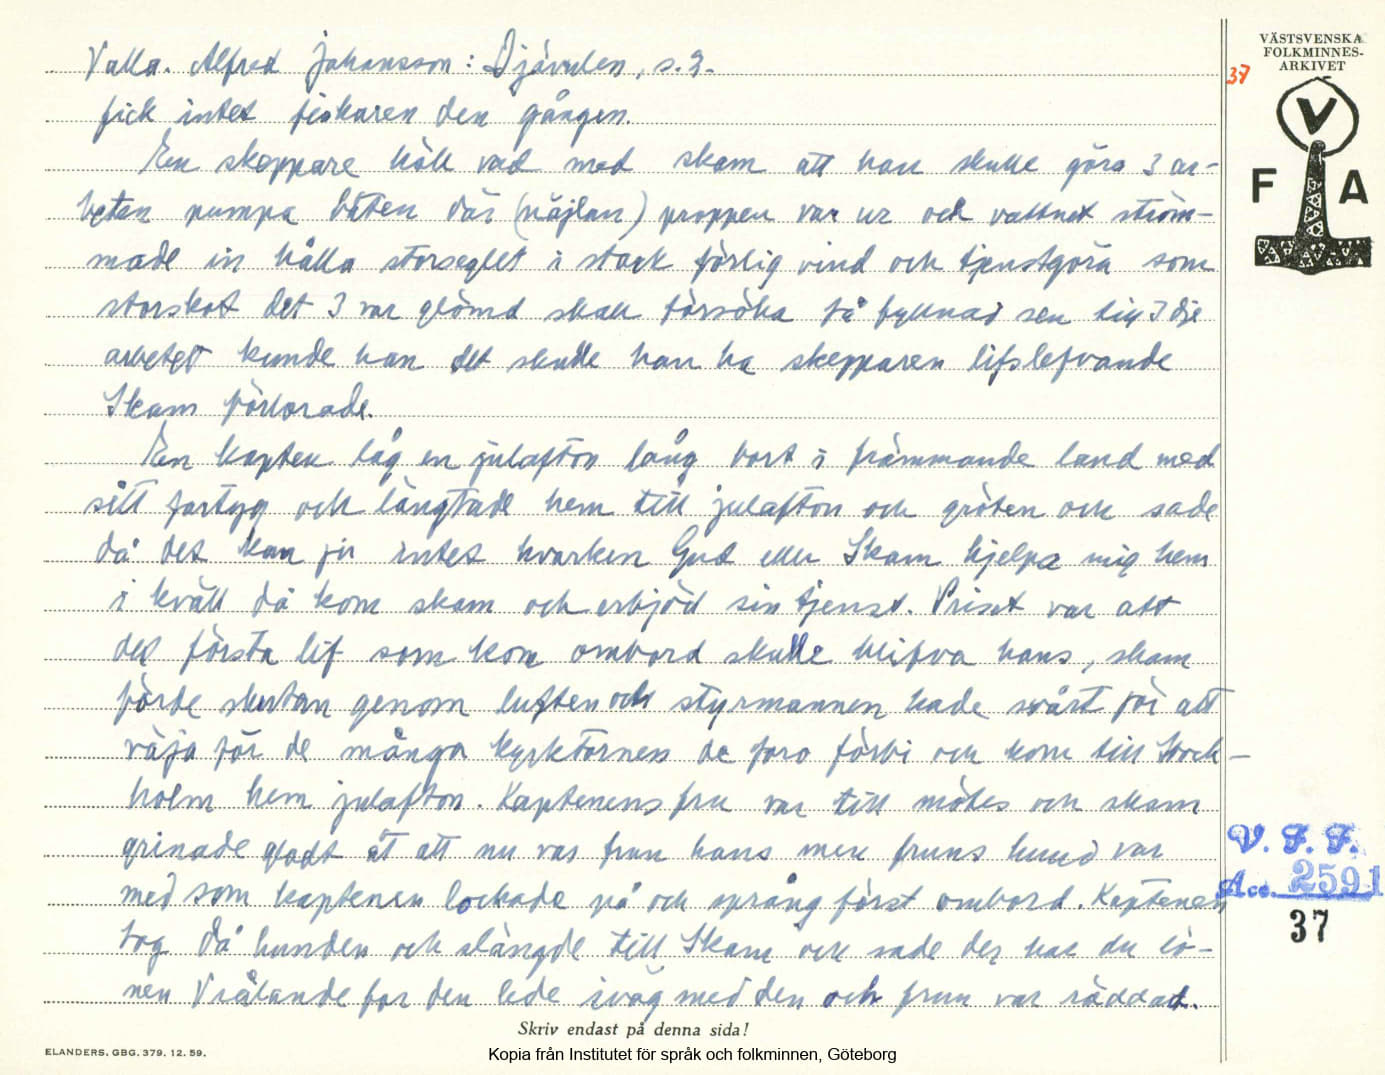 Valla. Alfred Johansson: Djävulen, s. 2.
fick intet fiskaren den gången.
En skeppare höll vad med skam att han skulle göra 3 ar-
beten pumpa båten där (näjlan) proppen var ur och vattnet ström-
made in hålla storseglet i stark förlig vind och tjenstgöra som
storskot det 3 var glömd skall försöka få fyllnad sen till 3dje
arbetet kunde han det skulle han ha skepparen lifslefvande
Skam förlorade.
En kapten låg en julafton lång bort i främmande land med
sitt fartyg och längtade hem till julafton och gröten och sade
då det kan ju intet hvarken Gud eller Skam hjelpa mig hem
i kväll då kom skam och erbjöd sin tjenst. Priset var att
det första lif som kom ombord skulle blifva hans, skam
förde skutan genom luften och styrmannen hade svårt för att
väja för de många kyrktornen de foro förbi och kom till Stock-
holm hem julafton. Kaptenens fru var till mötes och skam
grinade gladt åt att nu var frun hans men fruns hund var
med som kaptenen lockade på och sprang först ombord. Kaptenen
tog då hunden och slängde till Skam och sade der har du lö-
nen Vrålande for den lede iväg med den och frun var räddad.
Skriv endast på denna sida!
ELANDERS. GBG. 379. 12. 59.
Kopia från Institutet för språk och folkminnen, Göteborg
VÄSTSVENSKA
FOLKMINNES-
ARKIVET
37
V
F A
V. F. F.
Acc. 2591
37